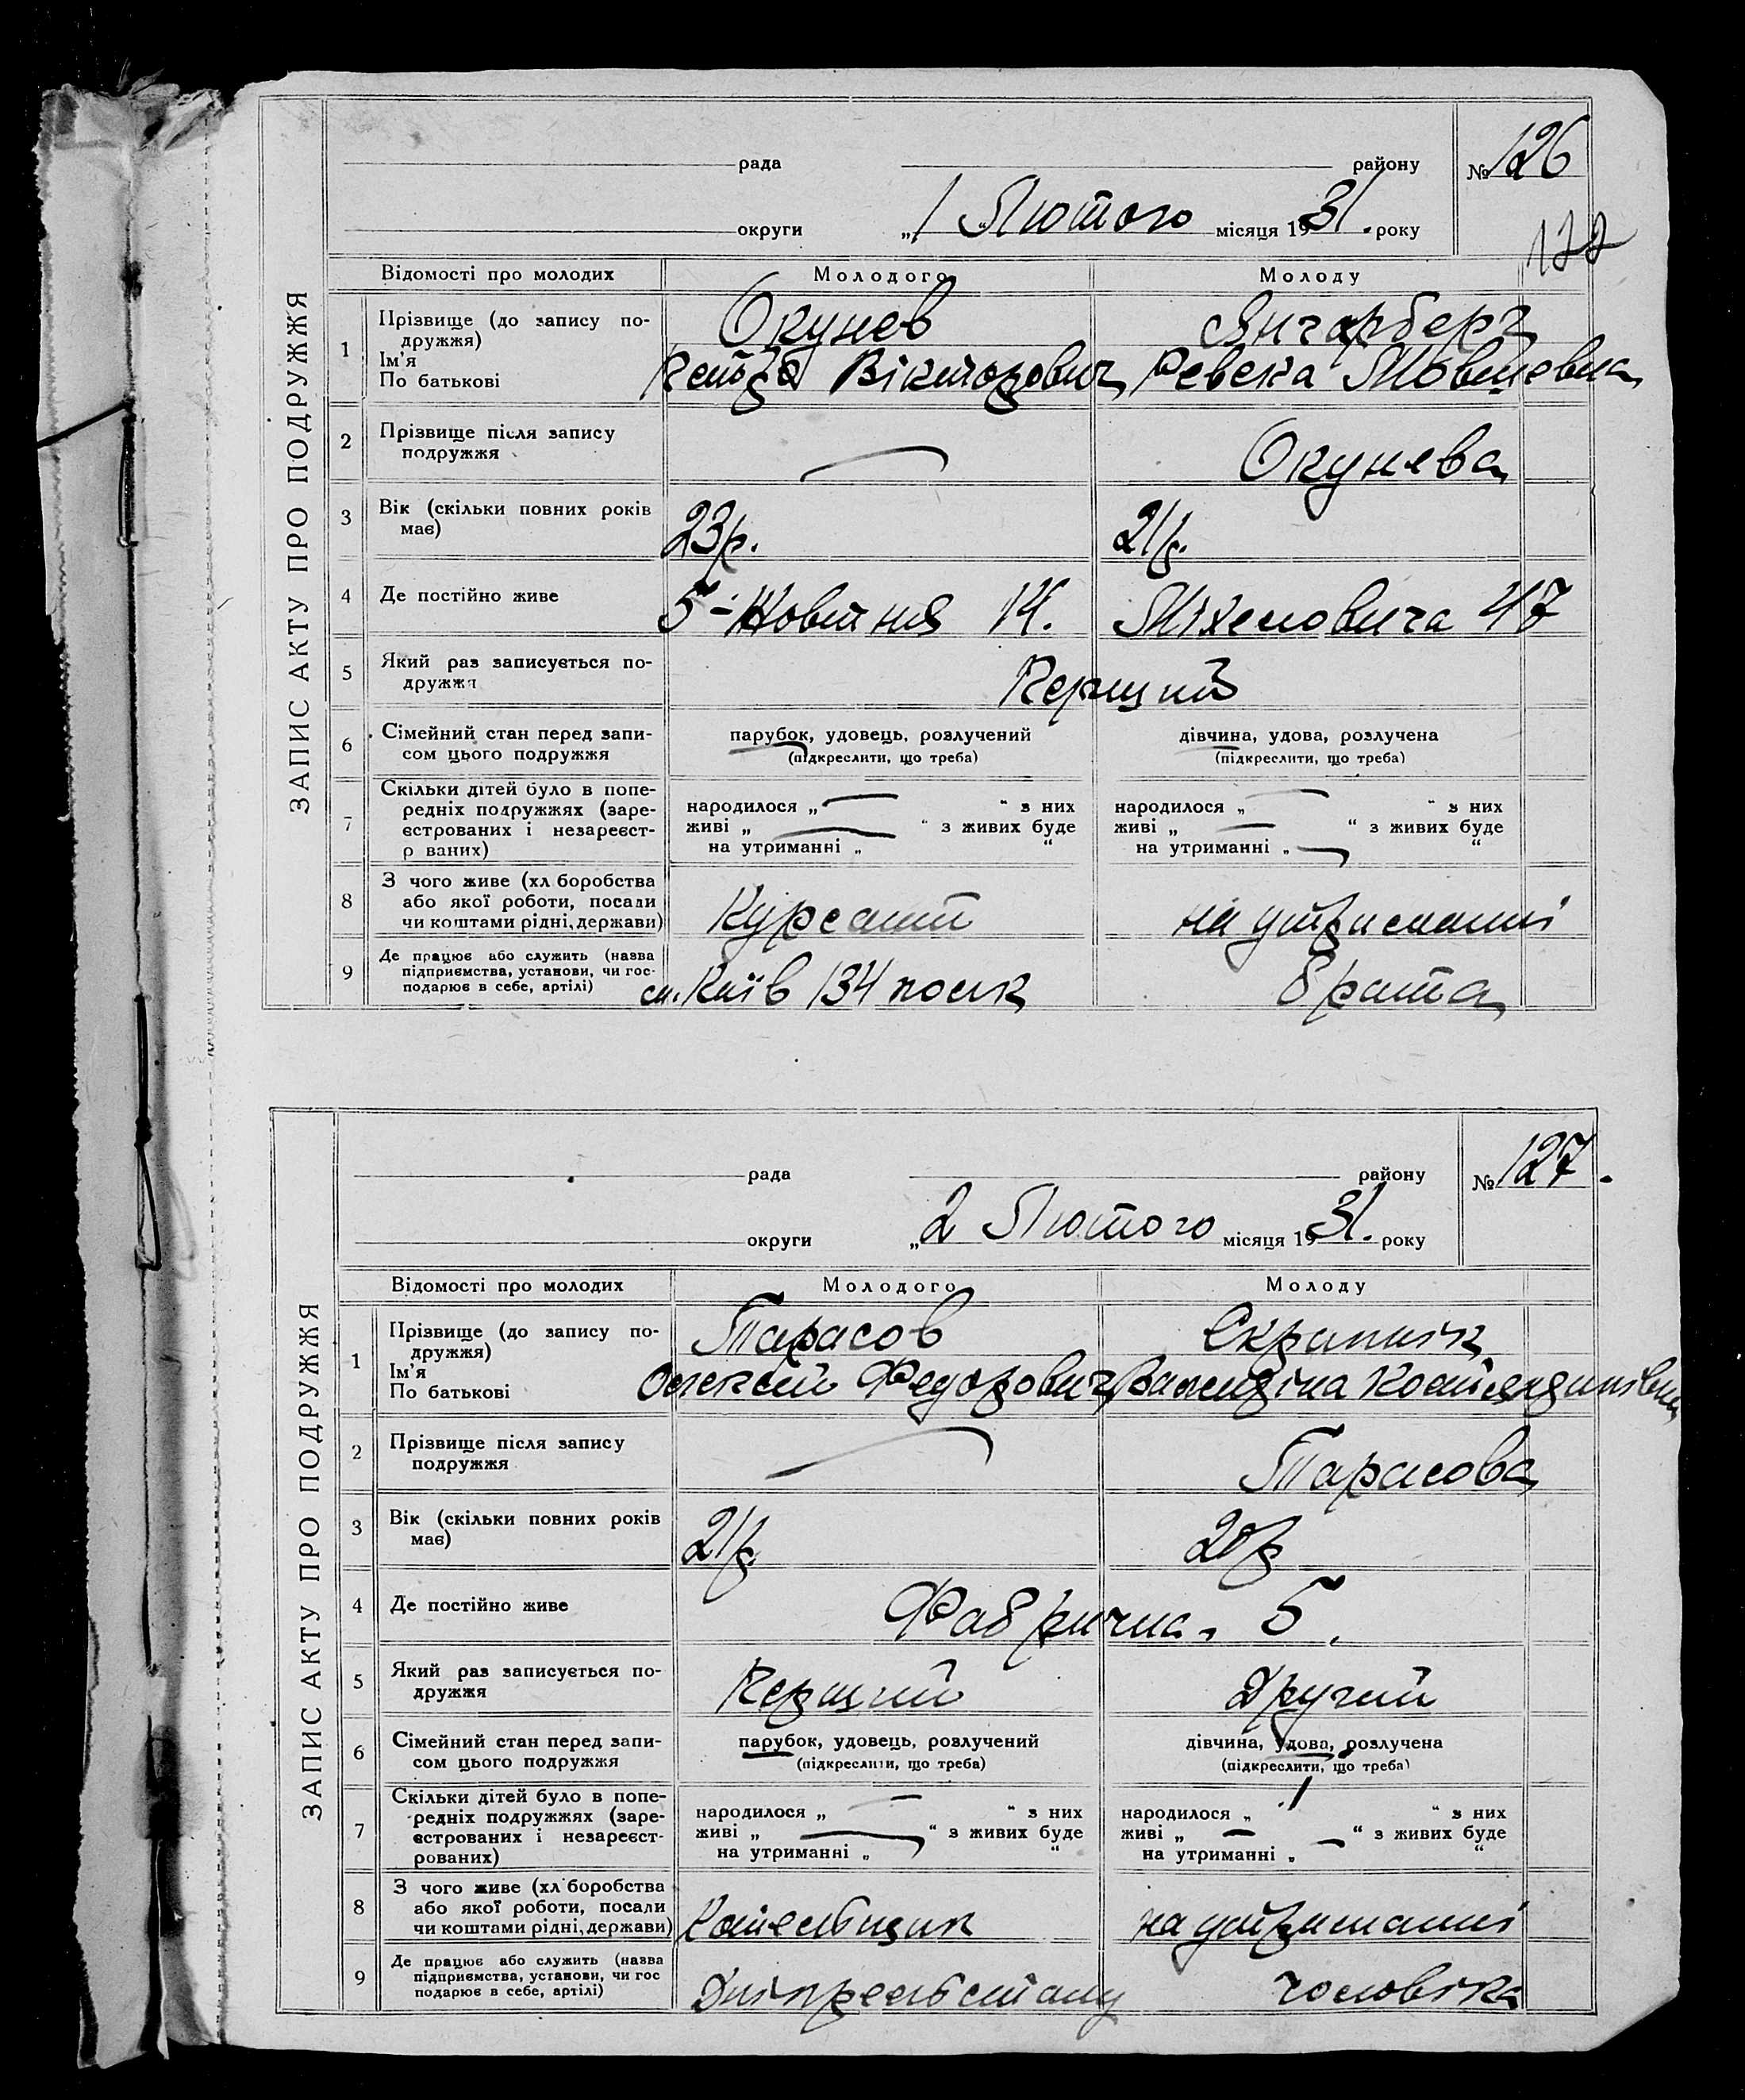 ЗАПИС АКТУ ПРО ПОДРУЖЖЯ
рада району № 126
округи „1“ Лютого місяця 1931. року
122
Відомості про молодих Молодого Молоду
1 Прізвище (до запису по-
дружжя) Окунев Янгарберг
Ім’я
По батькові Петро Вікторович Ревека Мовшевна
2 Прізвище після запису
подружжя — Окунева
3 Вік (скільки повних років
має) 23р. 21р.
4 Де постійно живе 5-Жовтня 14. Міхеловича 47
5 Який раз записується по-
дружжя Перший
6 Сімейний стан перед запи-
сом цього подружжя
парубок, удовець, розлучений дівчина, удова, розлучена
(підкреслити, що треба) (підкреслити, що треба)
7 Скільки дітей було в попе-
редніх подружжях (заре-
єстрованих і незареєст-
р ваних)
народилося „ — “ з них народилося „ — “ з них
живі „ — “ з живих буде живі „ — “ з живих буде
на утриманні „ “ на утриманні „ — “
8 З чого живе (хл боробства
або якої роботи, посади
чи коштами рідні, держави) Курсант на утриманні
9 Де працює або служить (назва
підприємства, установи, чи гос-
подарює в себе, артілі) м. Київ 134 полк брата
ЗАПИС АКТУ ПРО ПОДРУЖЖЯ
рада району № 127.
округи „2 Лютого місяця 1931. року
Відомості про молодих Молодого Молоду
1 Прізвище (до запису по-
дружжя) Тарасов Скрипнік
Ім’я
По батькові Олексій Федорович Валендіна Костяндинівна
2 Прізвище після запису
подружжя — Тарасова
3 Вік (скільки повних років
має) 21р. 20р
4 Де постійно живе Фабрична 5.
5 Який раз записується по-
дружжя Перший Другий
6 Сімейний стан перед запи-
сом цього подружжя
парубок, удовець, розлучений дівчина, удова, розлучена
(підкреслити, що треба) (підкреслити, що треба)
7 Скільки дітей було в попе-
редніх подружжях (заре-
єстрованих і незареєст-
рованих)
народилося „ — “ з них народилося „ 1 “ з них
живі „ — “ з живих буде живі „ — “ з живих буде
на утриманні „ “ на утриманні „ — “
8 З чого живе (хл боробства
або якої роботи, посади
чи коштами рідні, держави) Котельщик на утриманні
9 Де працює або служить (назва
підприємства, установи, чи гос
подарює в себе, артілі) Дніпрельстану чоловіка